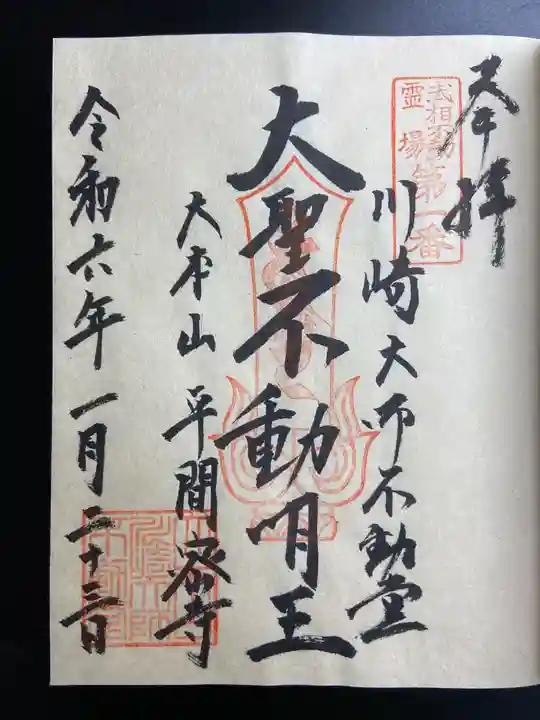 奉拝
武相不動
霊場
第一番
川崎大师不動堂
大聖不動明王
大本山 平間寺
令和六年一月二十三日